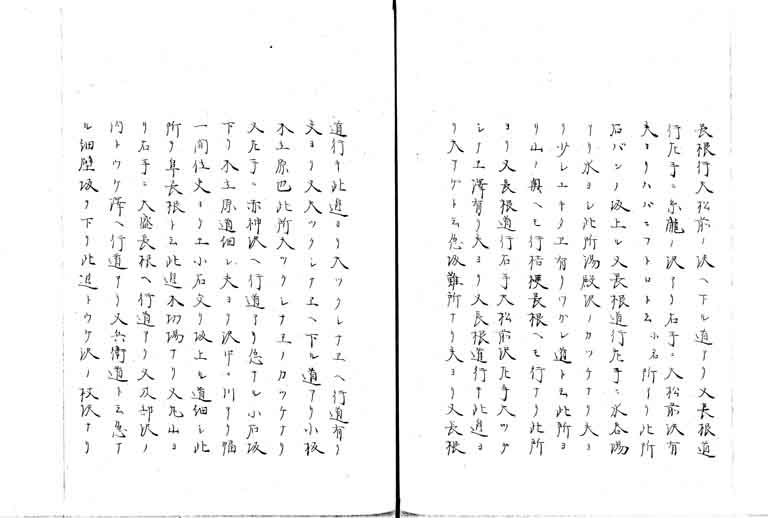 長根行大松前ノ沢ヘ下ル道アリ又長根道
行左手ニ糸瀧ノ沢アリ右手ニ大松前沢有
夫ヨリハバニフトロト云小名所アリ此所
石バンノ坂上ル又長根道行左手ニ水呑場
アリ水ヨシ此所湯殿沢ノカツケナリ夫ヨ
リ少シユキ タヱ有リワカレ道ト云此所ヨ
リ山ノ奥ヘモ行桔梗長根ヘモ行ナリ此所
ヨリ又長根道行右手大松前沢左手大ツク
シナヱ澤有リ夫ヨリ又長根道行キ此辺ヨ
リ大アゲト云急坂難所ナリ夫ヨリ又長根
道行キ此辺ヨリ大ツクシナヱヘ行道有リ
夫ヨリ又大ツクシナヱヘ下ル道アリ小坂
木立原也此所大ツクシナヱノカツケナリ
又左手ニ赤神沢ヘ行道アリ急ナル小石坂
下リ木立原道細シ夫ヨリ沢 川アリ幅
一間位夫ヨリ 小石交リ坂上ル道細シ此
所リ阜長根ト云此辺木切場ナリ又丸山ヨ
リ右手ニ大盛長根ヘ行道アリ又 部沢ノ
内トウケ澤ヘ行道アリ又兵衛道ト云急ナ
ル細壁坂リ下リ此辺トウケ沢ノ枝沢ナリ